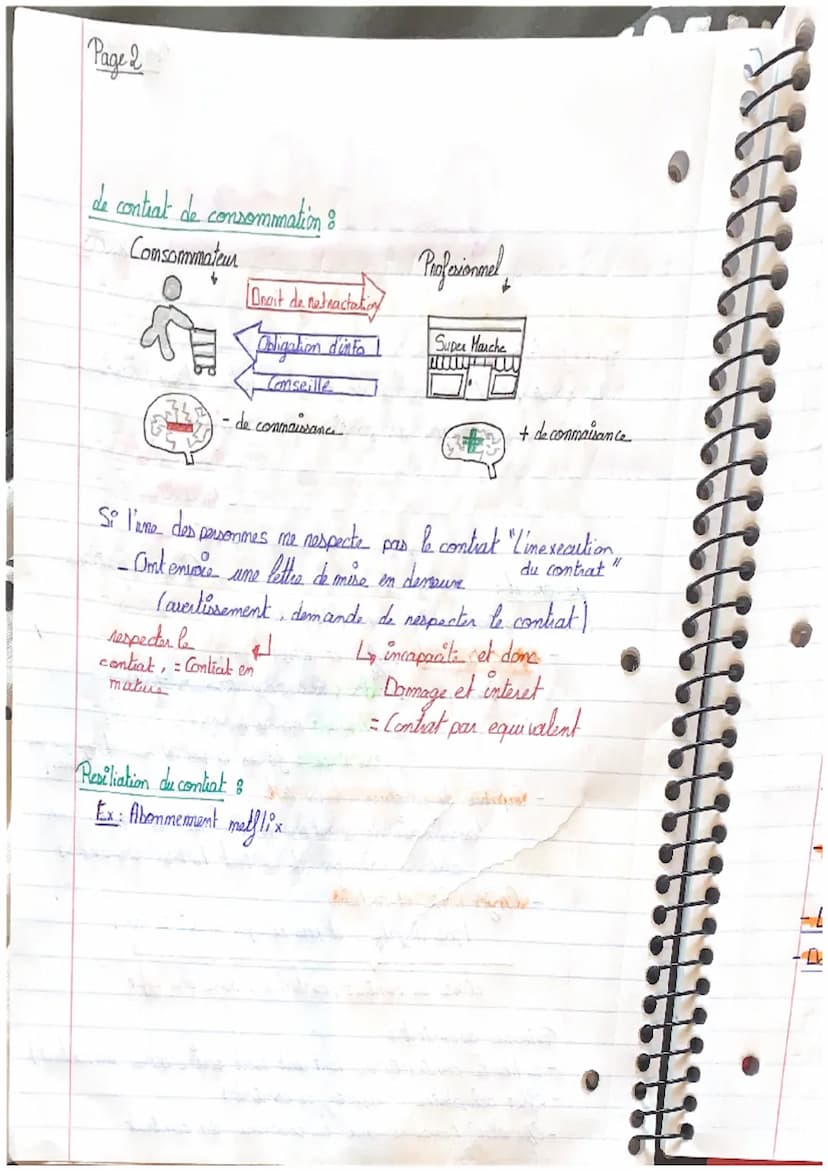 Page 2
de contrat de consommation :
Consommateur
Profesionnel
Droit de retractation
Obligation d'info
Conseille
Super Marche
- de connaissance
+ de connaisance
Si l'une des personnes ne respecte pas le contrat "L'inexecution
du contrat"
- Ont envoie une lettre de mise en demeure
(avertissement, demande de respecter le contrat)
respecter le
contrat, = Contrat en
nature
↳ incapacité et donc
Domage et interet
= Contrat par equivalent
Resiliation du contrat :
Ex : Abonnement netflix